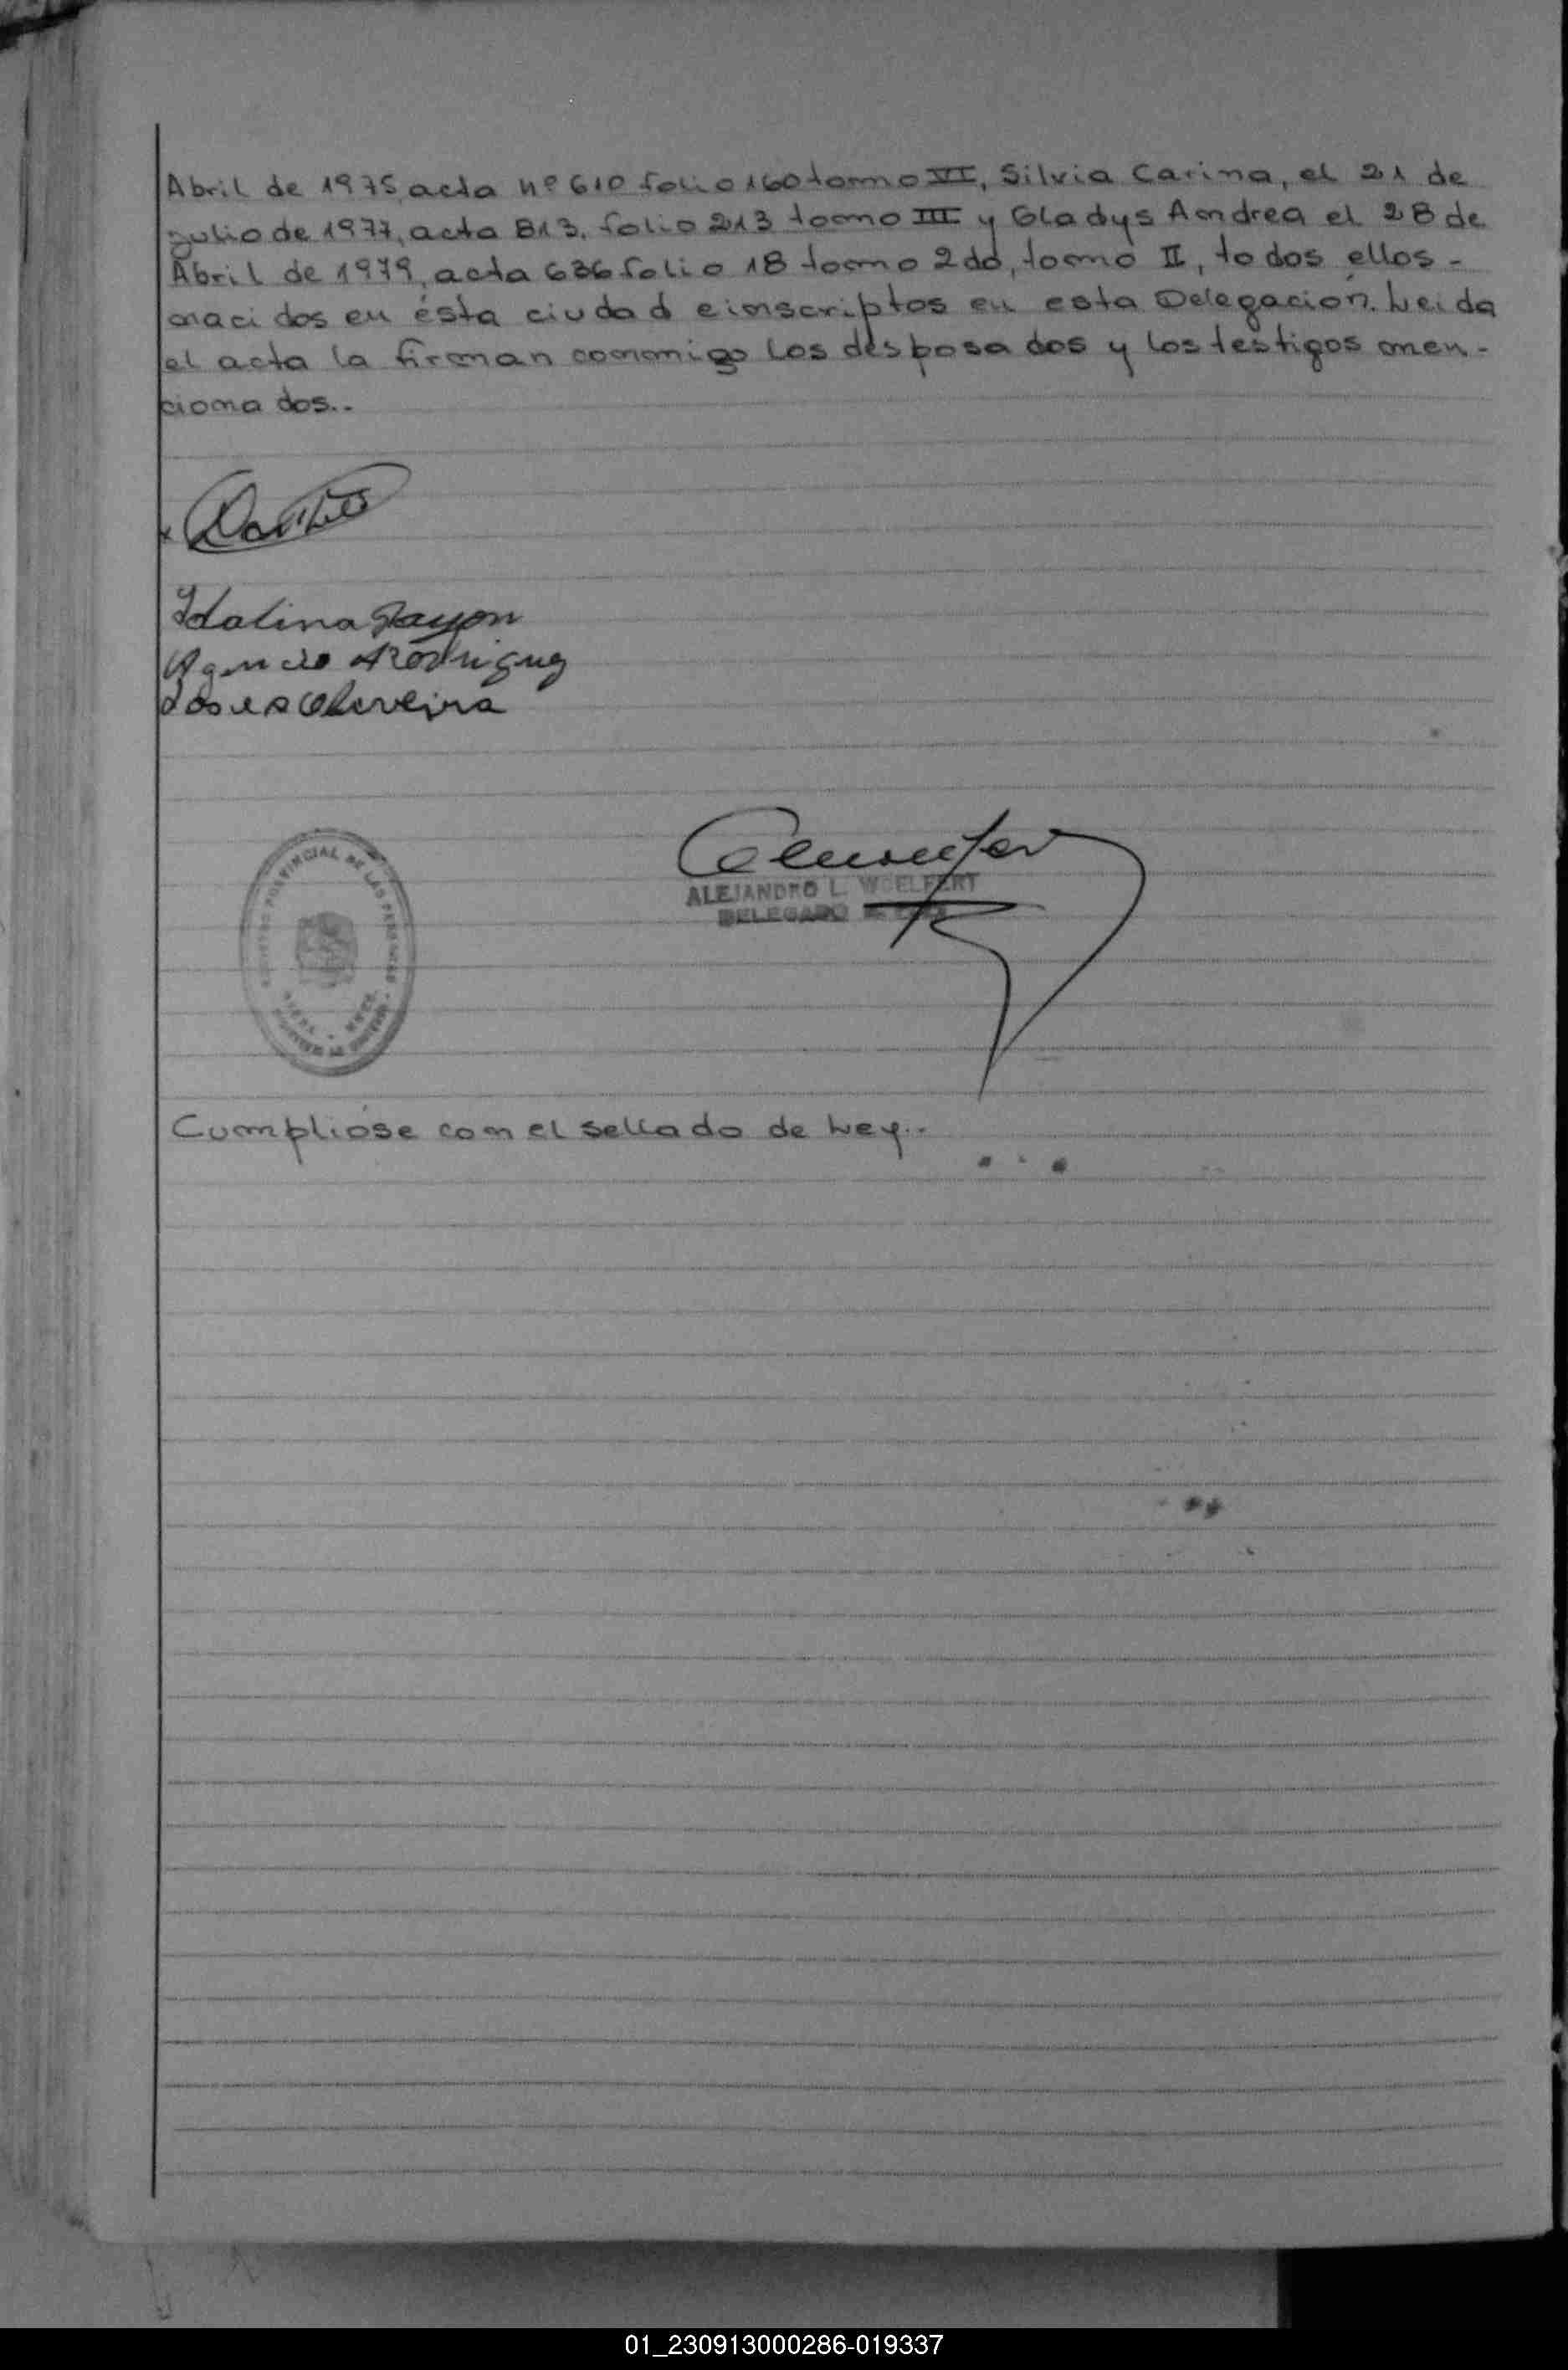 Abril de 1975, acta nº 610 folio 160 tomo VI, Silvia Carina, el 21 de
julio de 1977, acta 813. folio 213 tomo III y Gladys Andrea el 28 de
Abril de 1979, acta 636 folio 18 tomo 2do, tomo II, todos ellos -
nacidos en ésta ciudad e inscriptos en esta Delegación. Leida
el acta la firman conmigo los desposados y los testigos men-
cionados..
Idalina
Rodriguez
Oliveira
PROVINCIAL DE LAS PERSONAS
ALEJANDRO L. WOELFERT
DELEGADO
Cumplióse con el sellado de Ley..
01_230913000286-019337